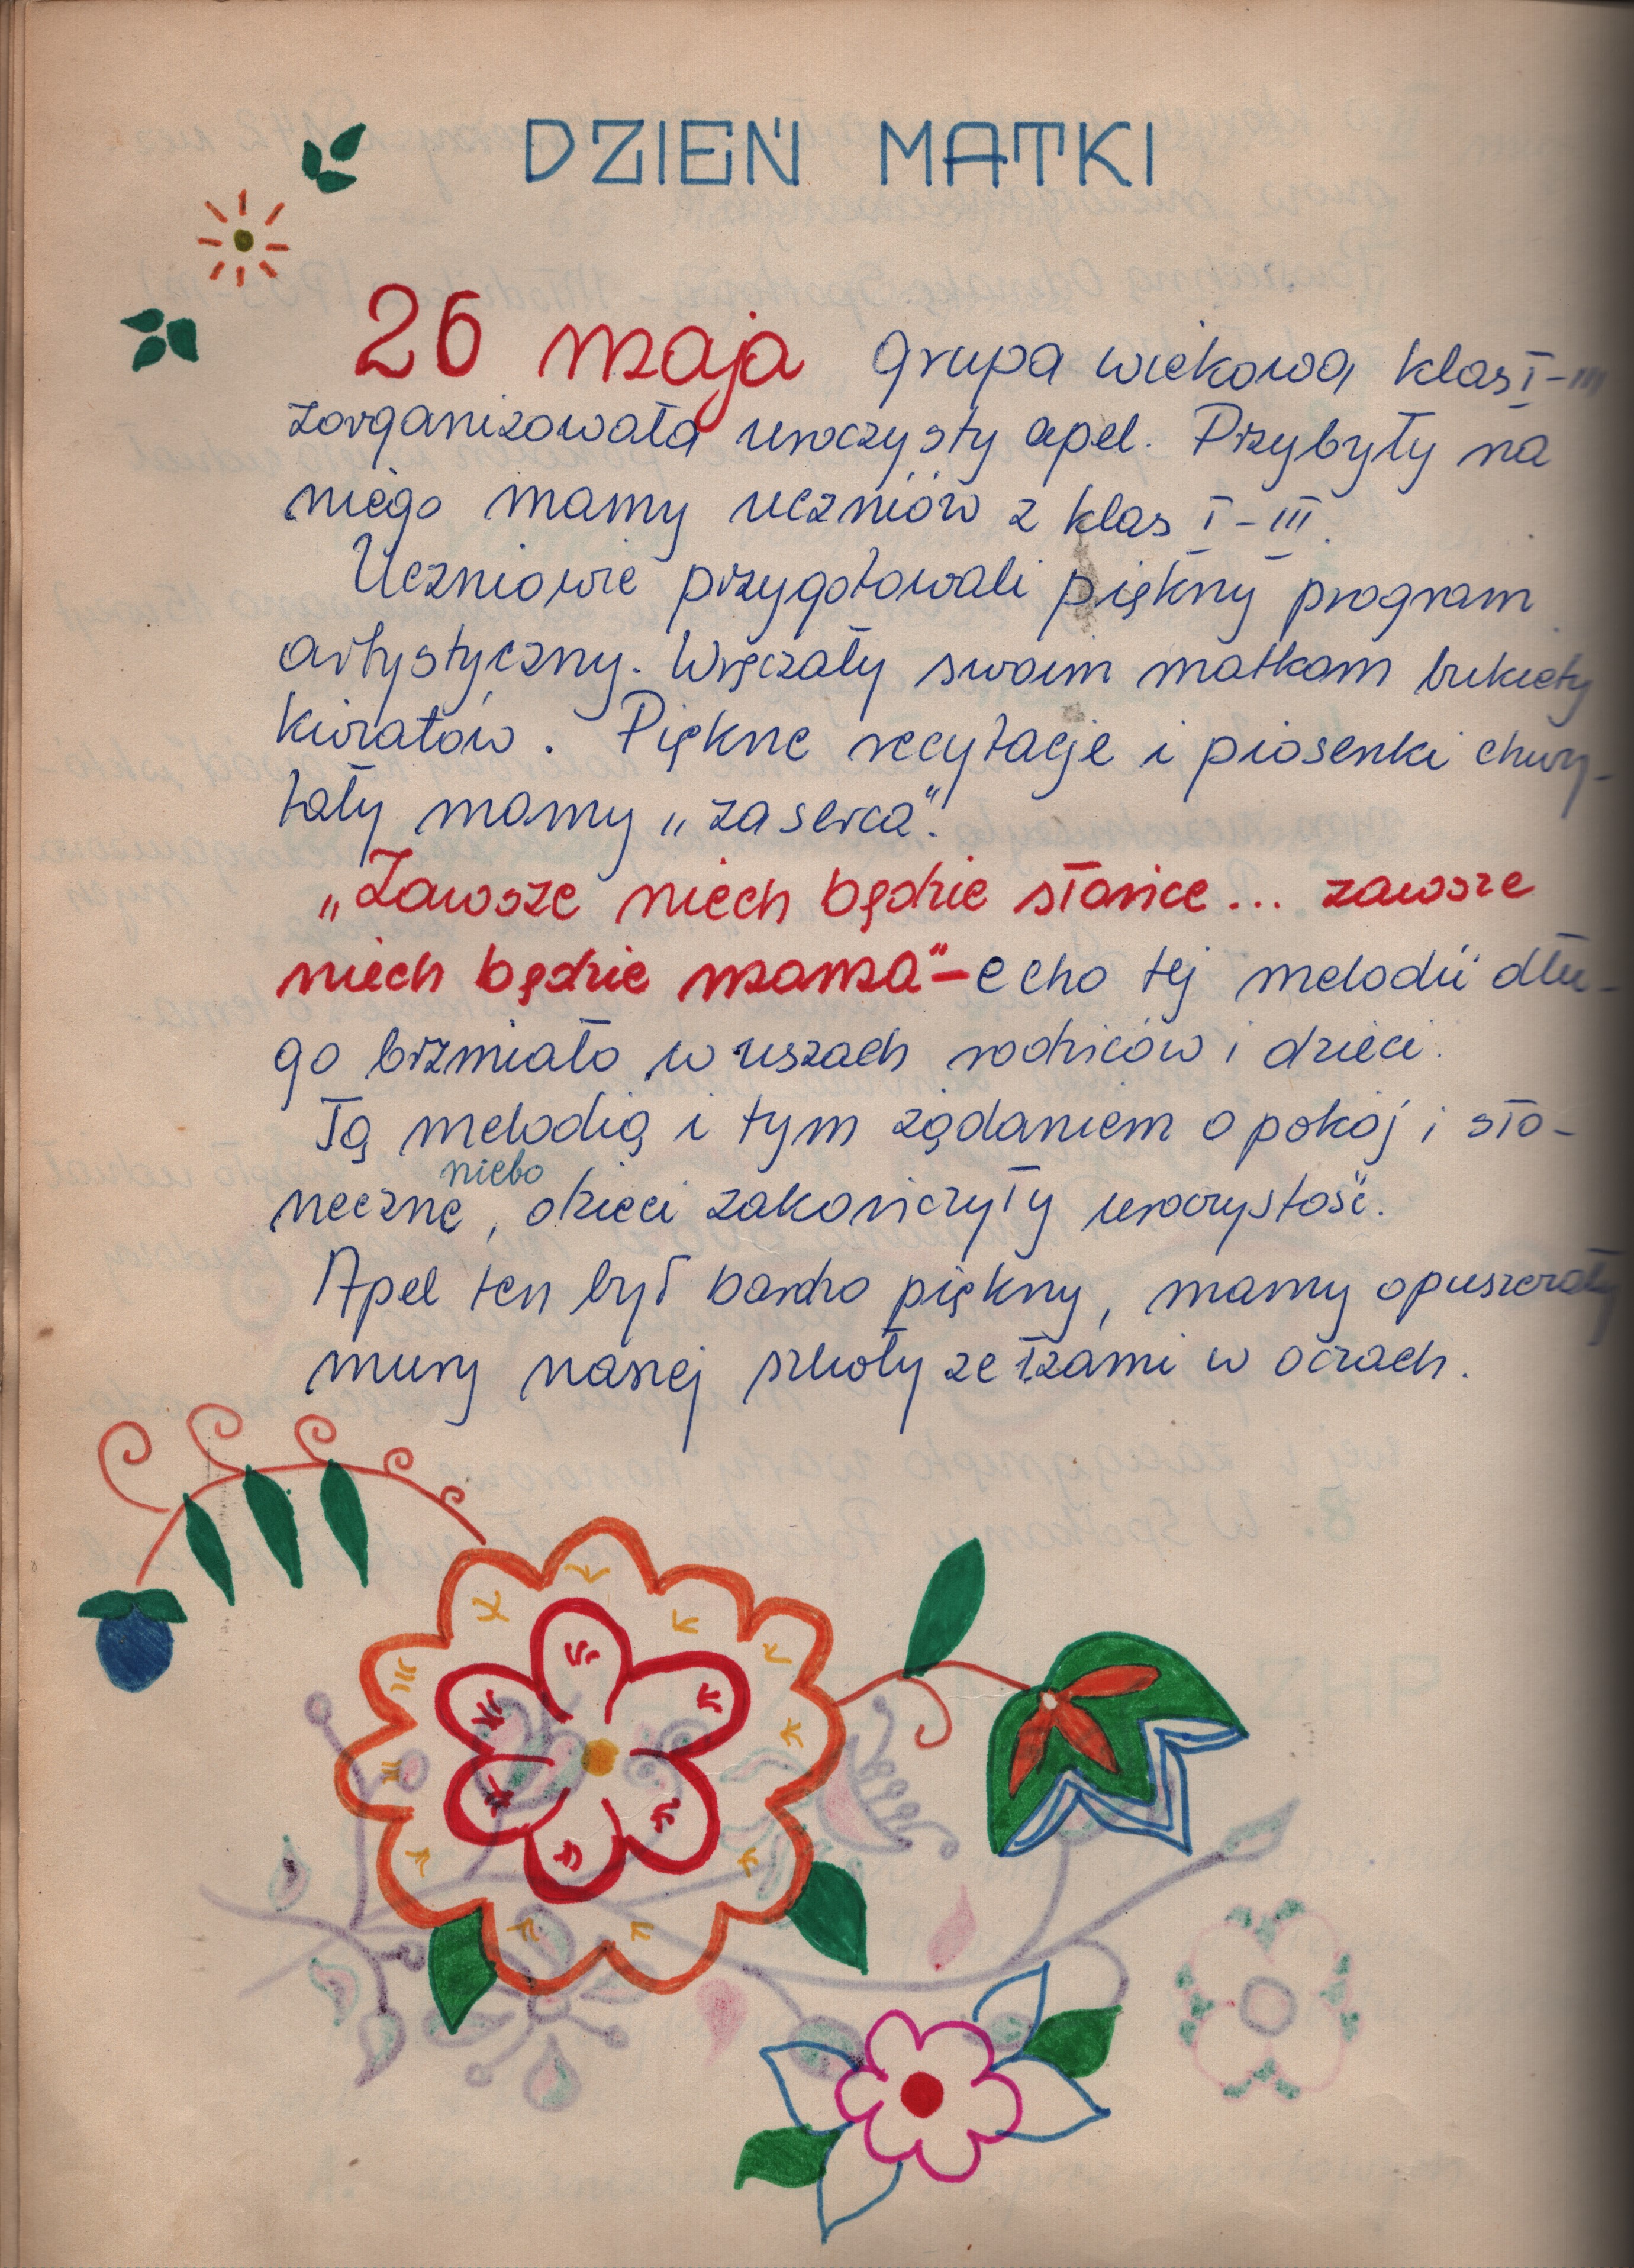 DZIEŃ MATKI
26 maja grupa wiekowa klas I-III
zorganizowała uroczysty apel. Przybyły na
niego mamy uczniów z klas I-III.
Uczniowie przygotowali piękny program
artystyczny. Wręczały swoim matkom bukiety
kwiatów. Piękne recytacje i piosenki chwy-
tały mamy „za serca".
„Zawsze niech będzie słońce... zawsze
niech będzie mama"- echo tej melodii dłu-
go brzmiało w uszach rodziców i dzieci.
Tą melodią i tym żądaniem o pokój i sło-
neczne niebo, dzieci zakończyły uroczystość.
Apel ten był bardzo piękny, mamy opuszczały
mury naszej szkoły ze łzami w oczach.